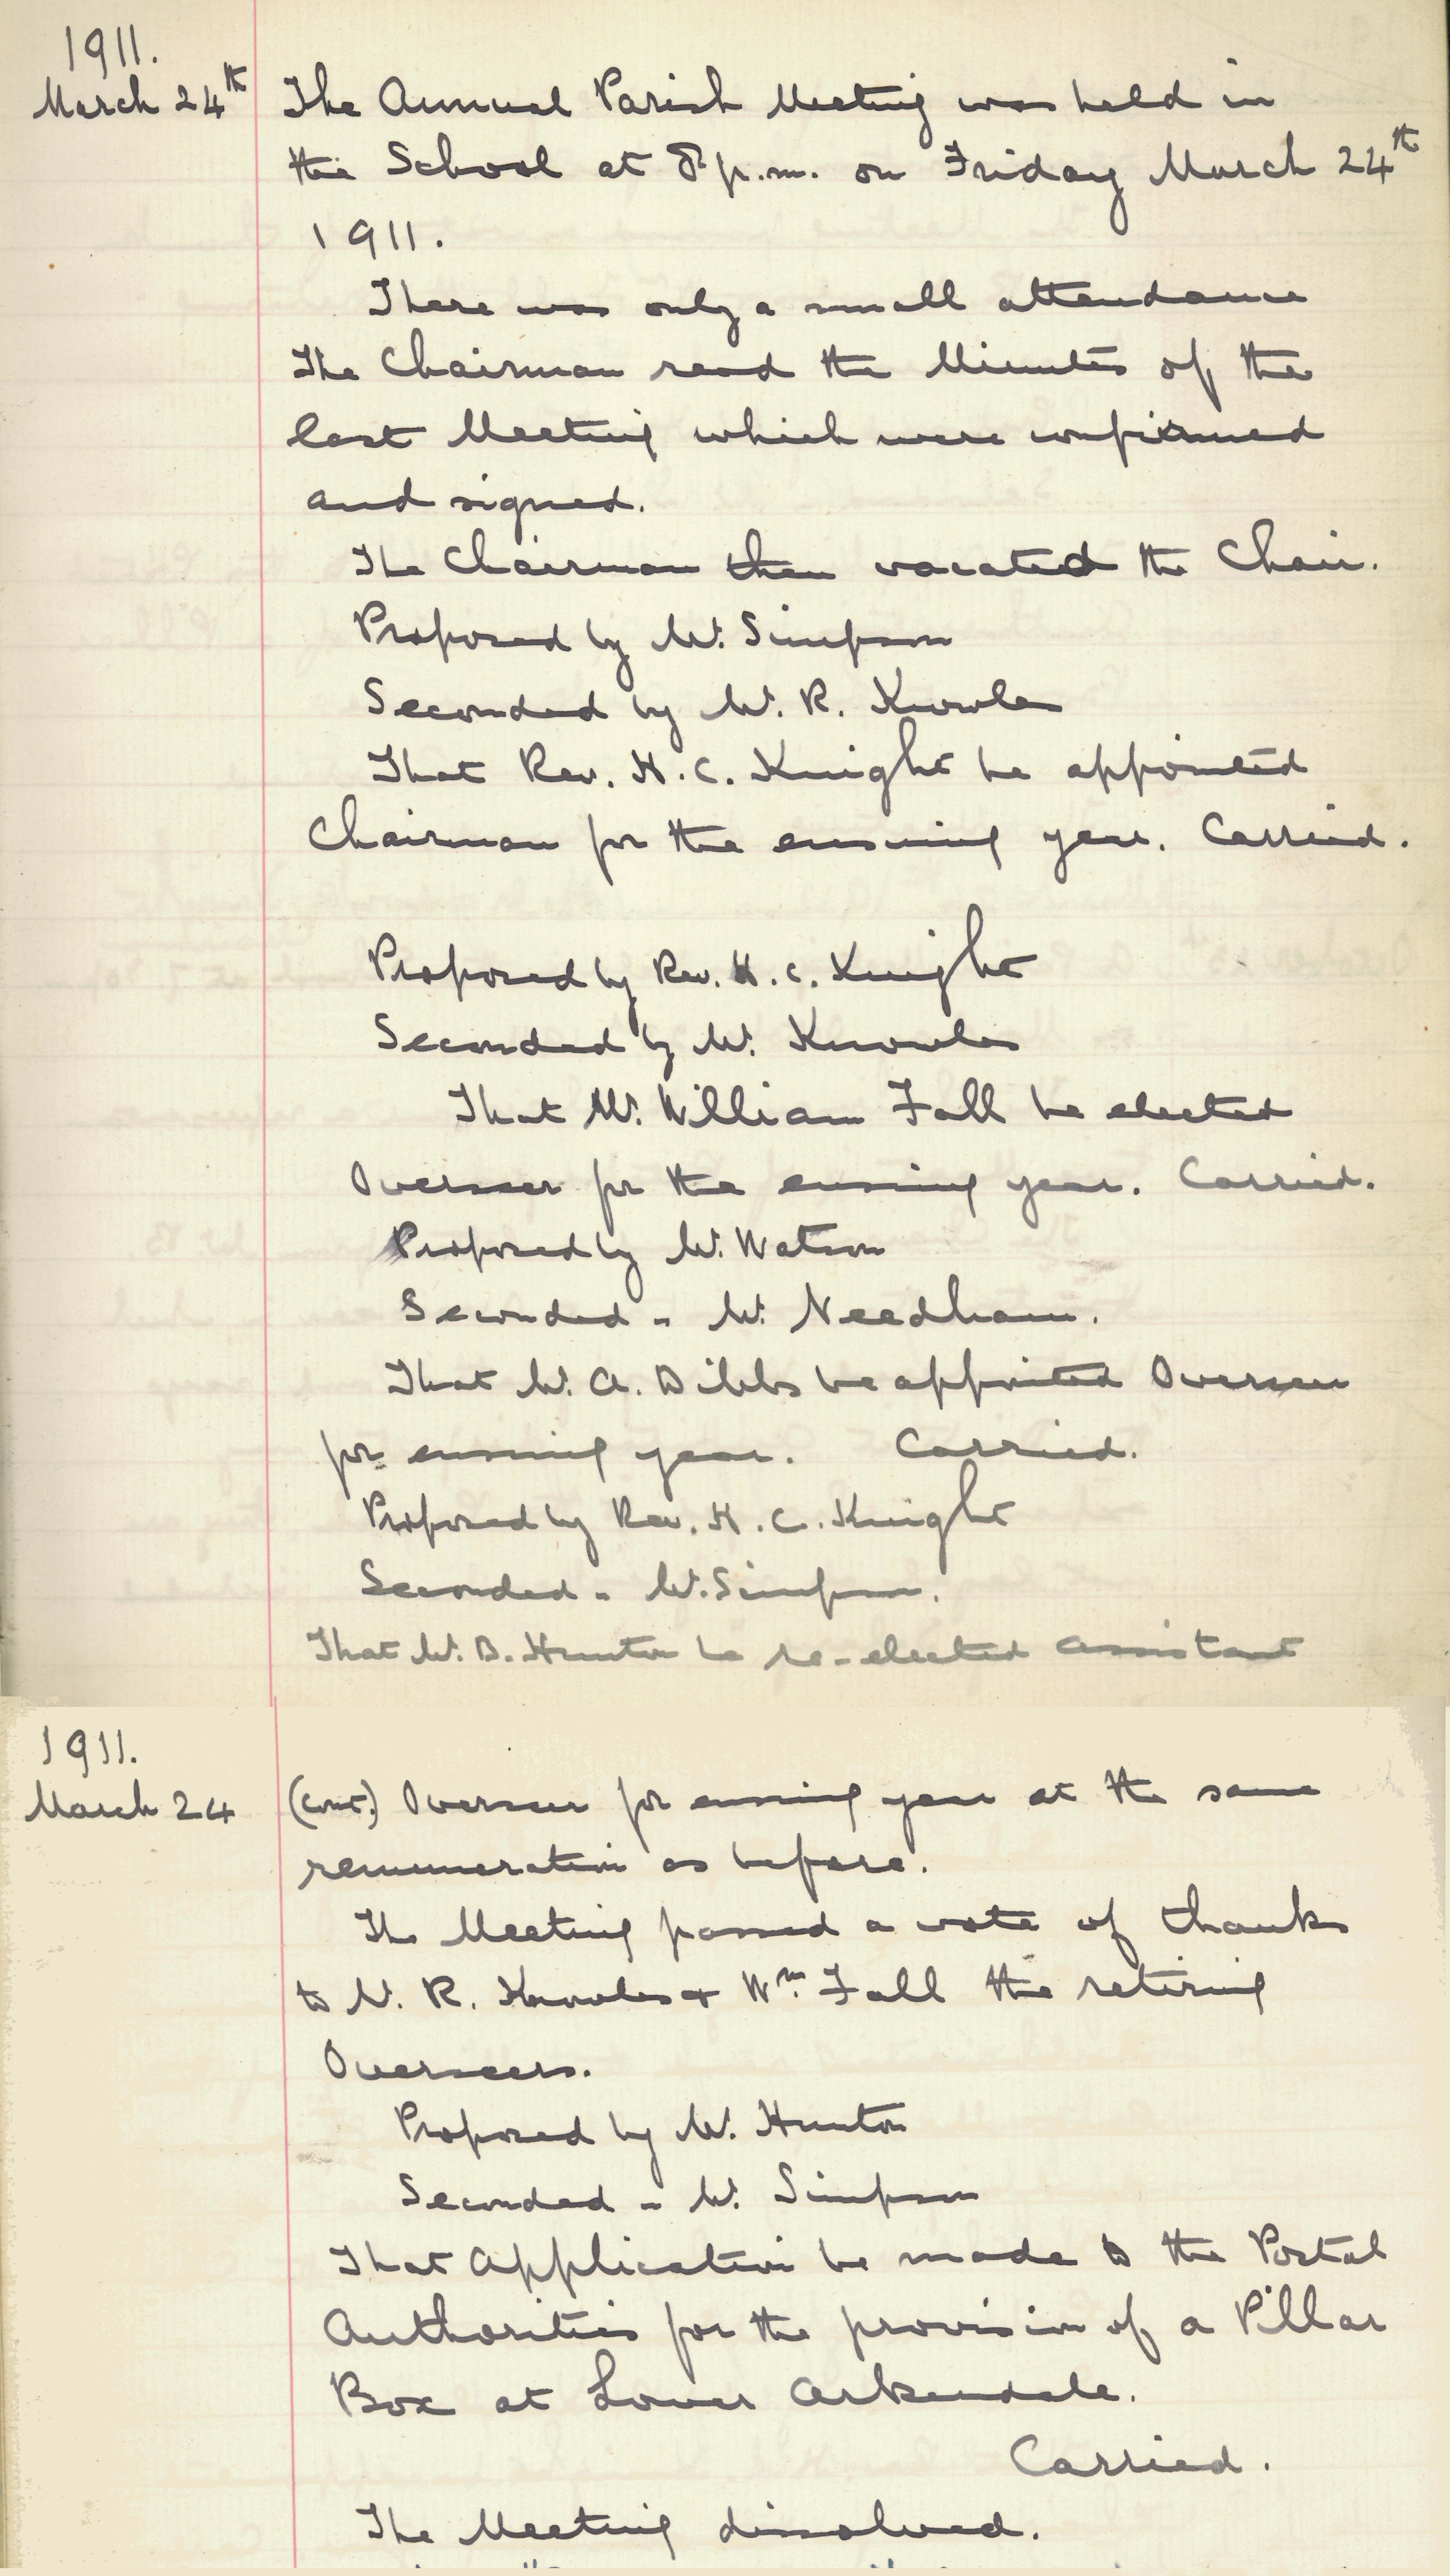 1911.
March 24th
The Annual Parish Meeting was held in
the School at 8 p.m. on Friday March 24th
1911.
There was only a small attendance
The Chairman read the Minutes of the
last Meeting which were confirmed
and signed.
The Chairman then vacated the Chair.
Proposed by Mr. Simpson
Seconded by Mr. R. Knowles
That Rev. H. C. Knight be appointed
Chairman for the ensuing year. Carried.
Proposed by Rev. H. C. Knight
Seconded by Mr. Knowles
That Mr. William Fall be elected
Overseer for the ensuing year. Carried.
Proposed by Mr. Watson
Seconded " Mr. Needham.
That Mr. A. Dibbs be appointed Overseer
for ensuing year. Carried.
Proposed by Rev. H. C. Knight
Seconded " Mr. Simpson.
That Mr. B. Hunton be re-elected Assistant
1911.
March 24
(cont.) Overseer for ensuing year at the same
remuneration as before.
The Meeting passed a vote of thanks
to Mr. R. Knowles & Wm. Fall the retiring
Overseers.
Proposed by Mr. Hunton
Seconded " Mr. Simpson
That Application be made to the Postal
Authorities for the provision of a Pillar
Box at Lower Arkendale.
Carried.
The Meeting dissolved.